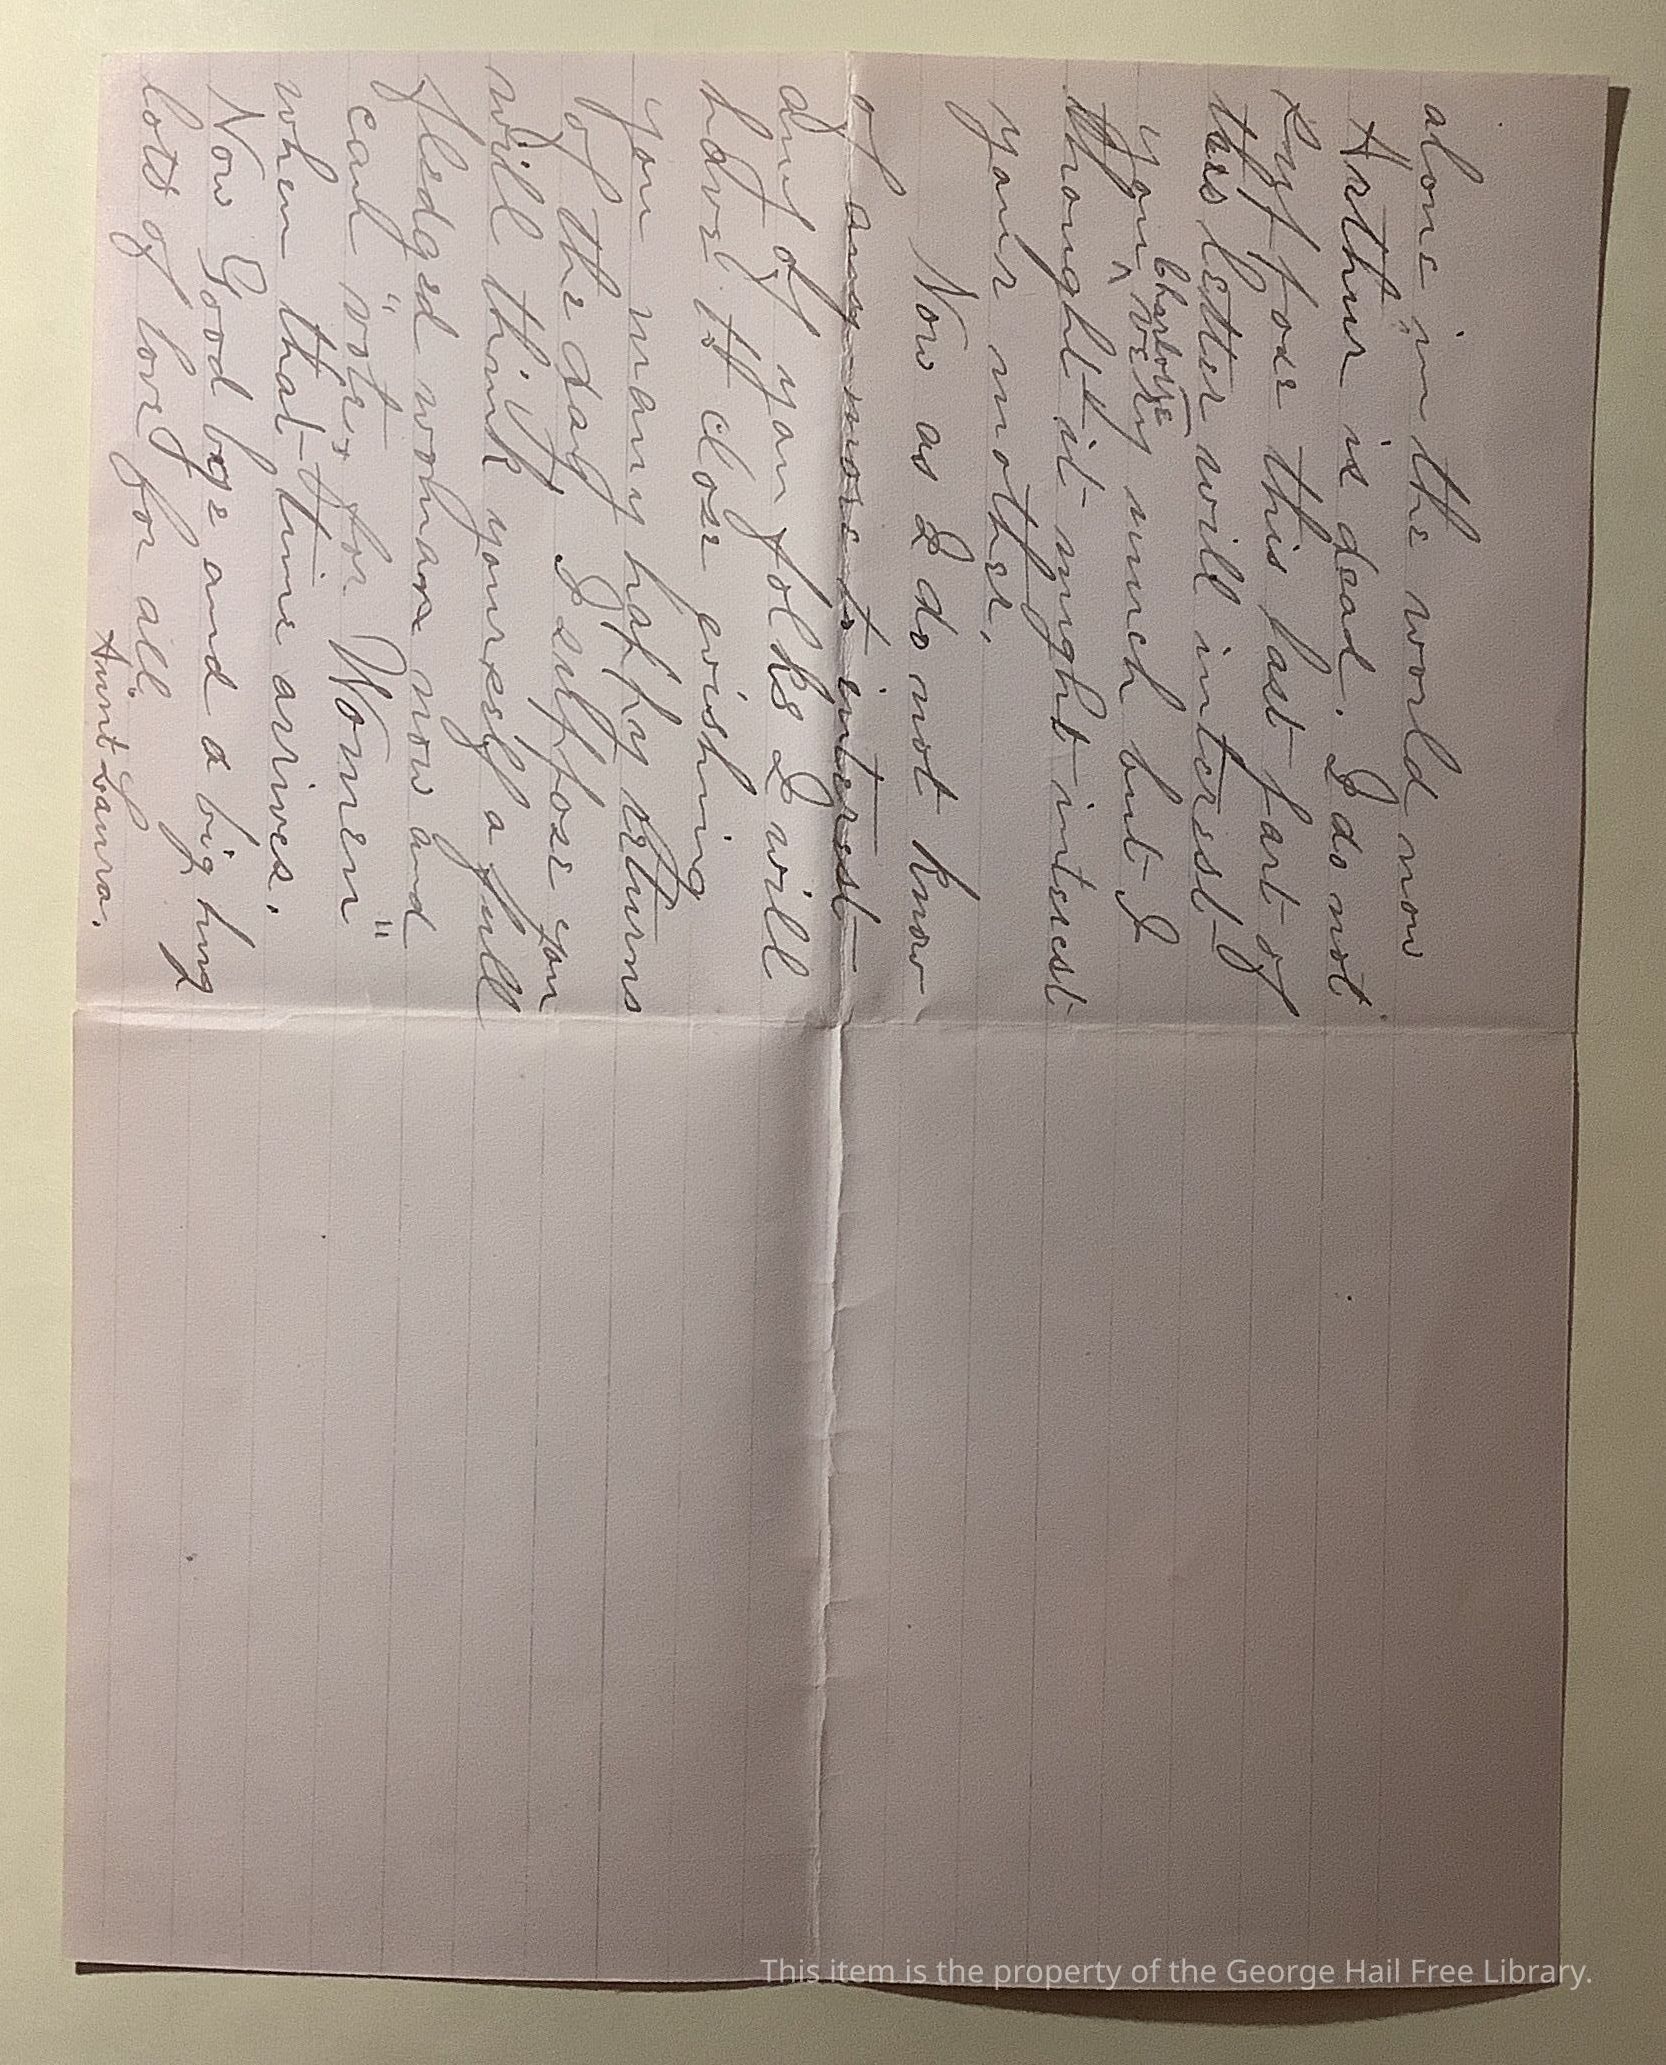 alone in the world now
Arthur is dead. I do not
suppose this last part of
this letter will interest
you ^ Charlotte very much but I
thought it might interest
your mother.
Now as I do not know
of any more to interest
any of you folks I will
have to close wishing
you many happy returns
of the day I suppose you
will think yourself a full
fledged woman now and
can "vote" for "Women"
when that time arrives.
Now Good bye and a big hug
lots of love for all.
Aunt Laura.
This item is the property of the George Hail Free Library.